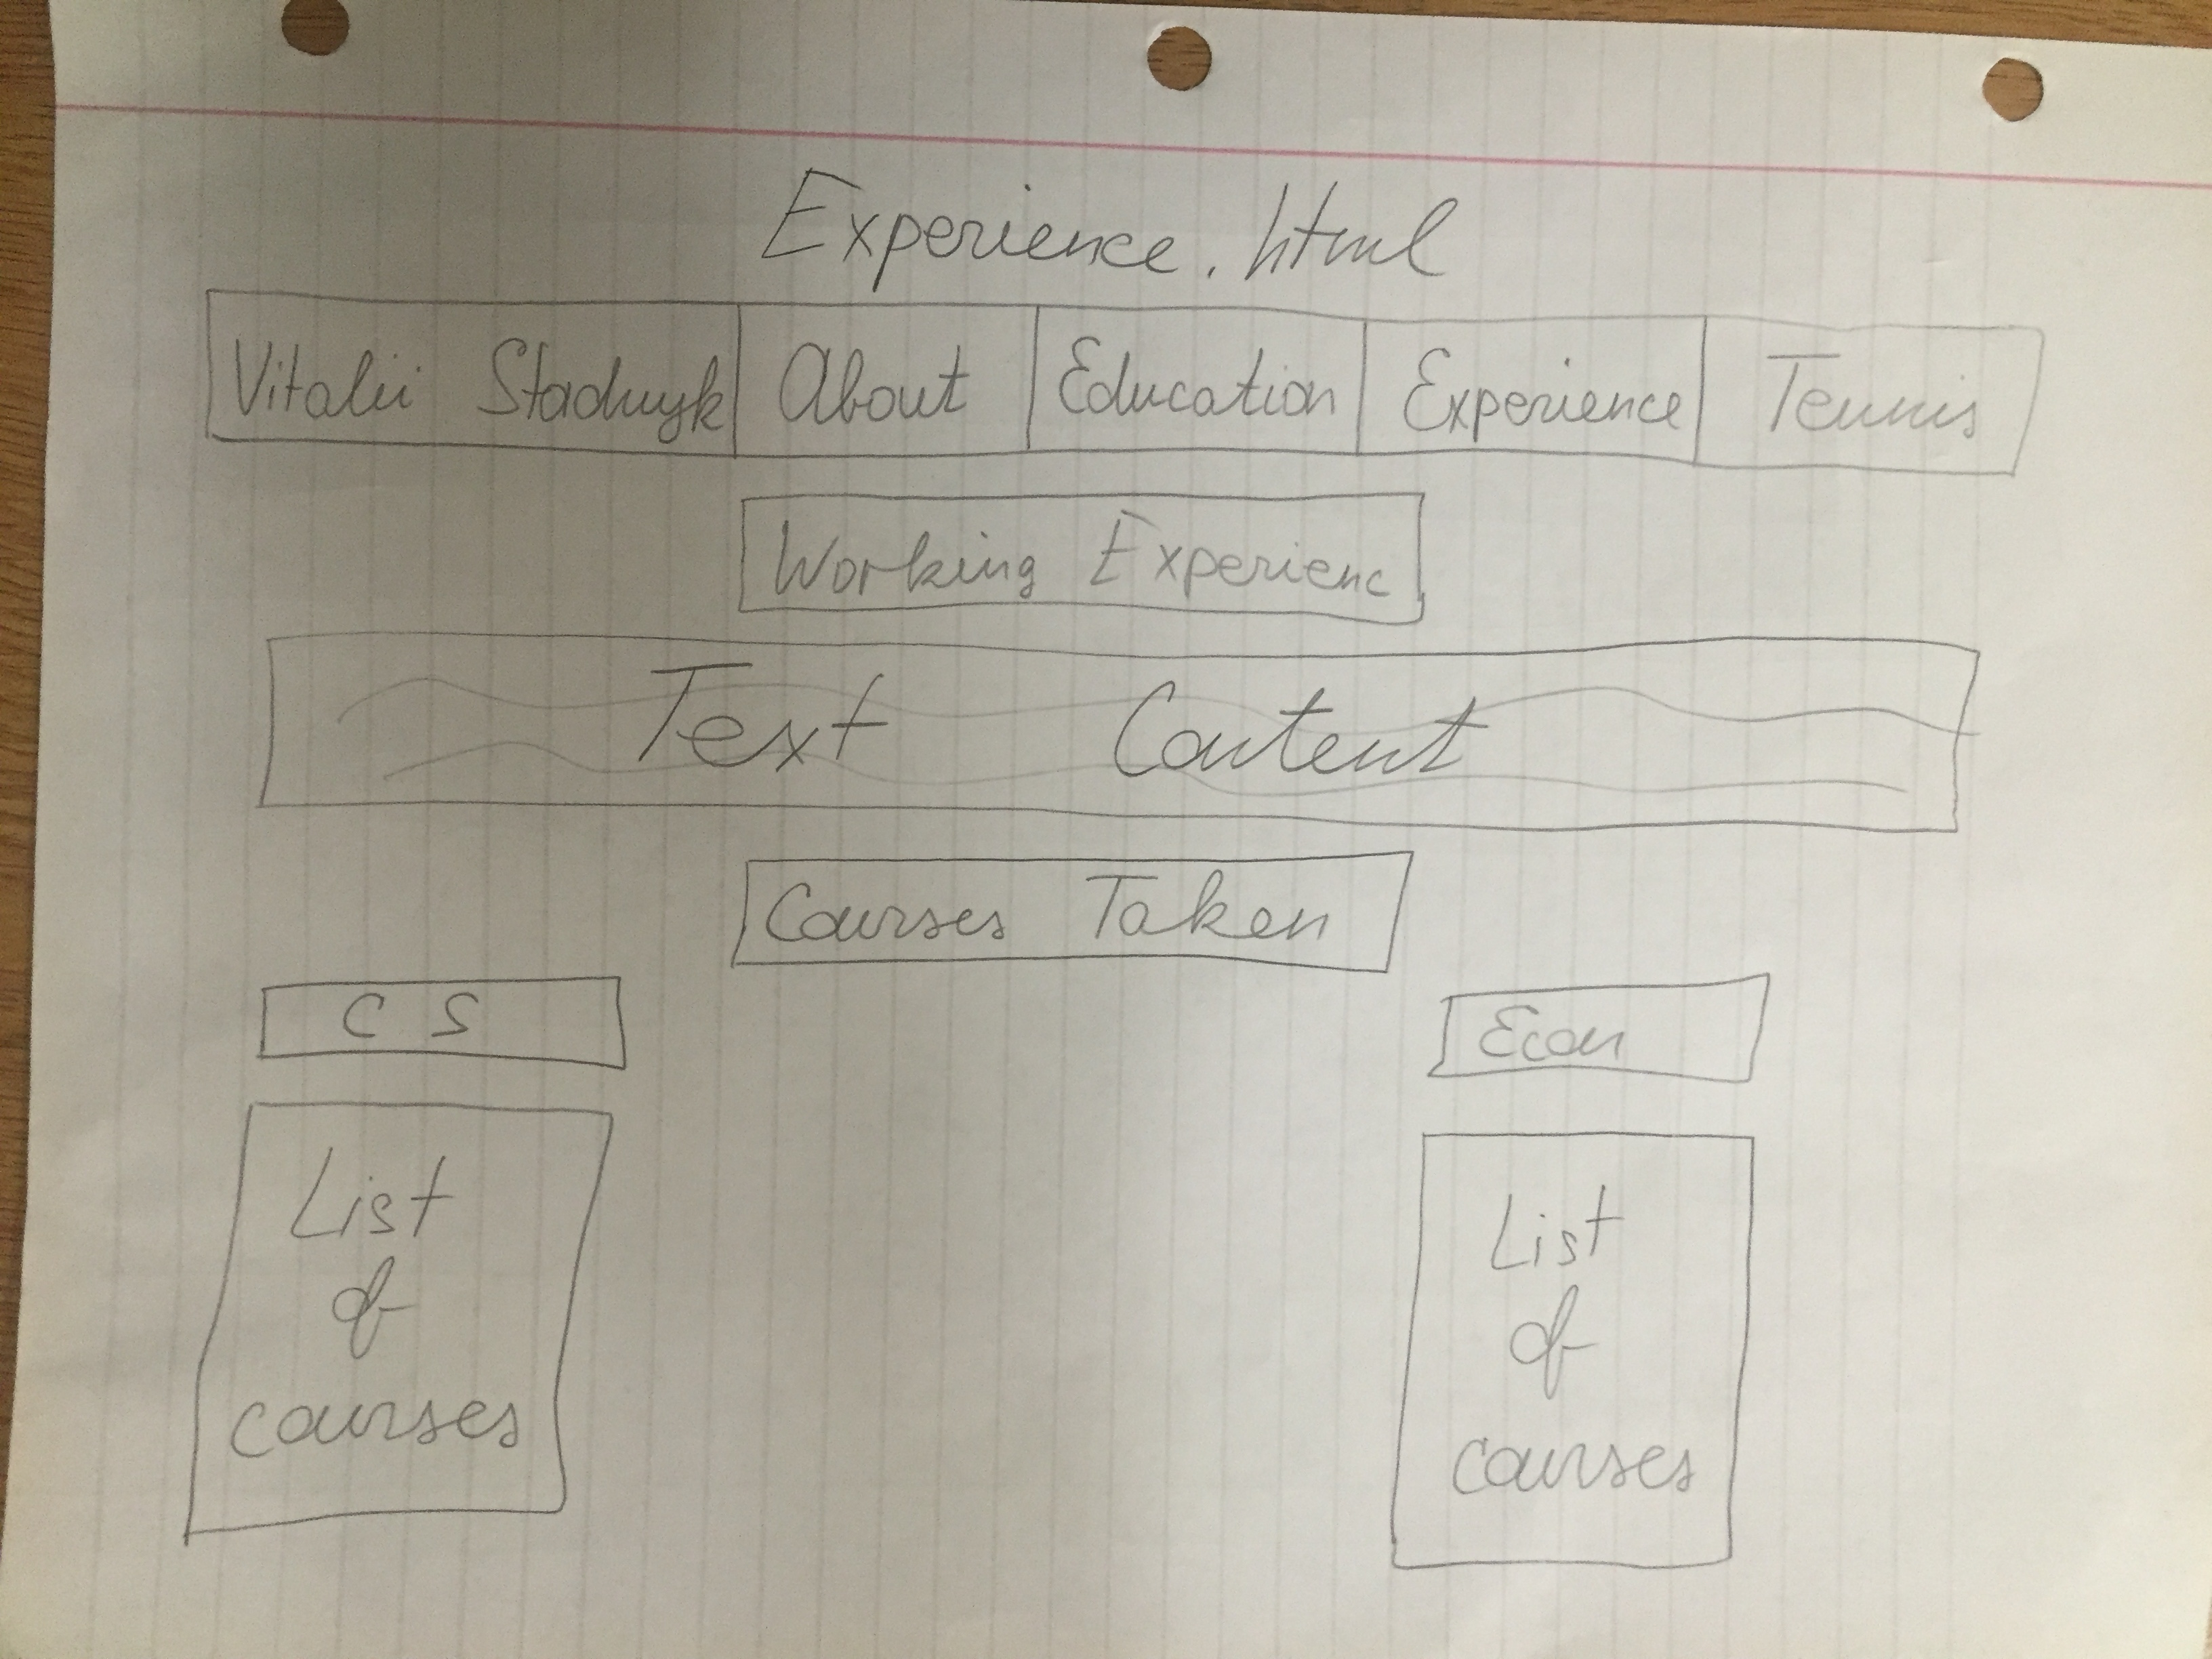 Experience.html
Vitalii Stadnyk About Education Experience Tennis
Working Experienc
Text Content
Courses Taken
CS Econ
List
of
courses
List
of
courses